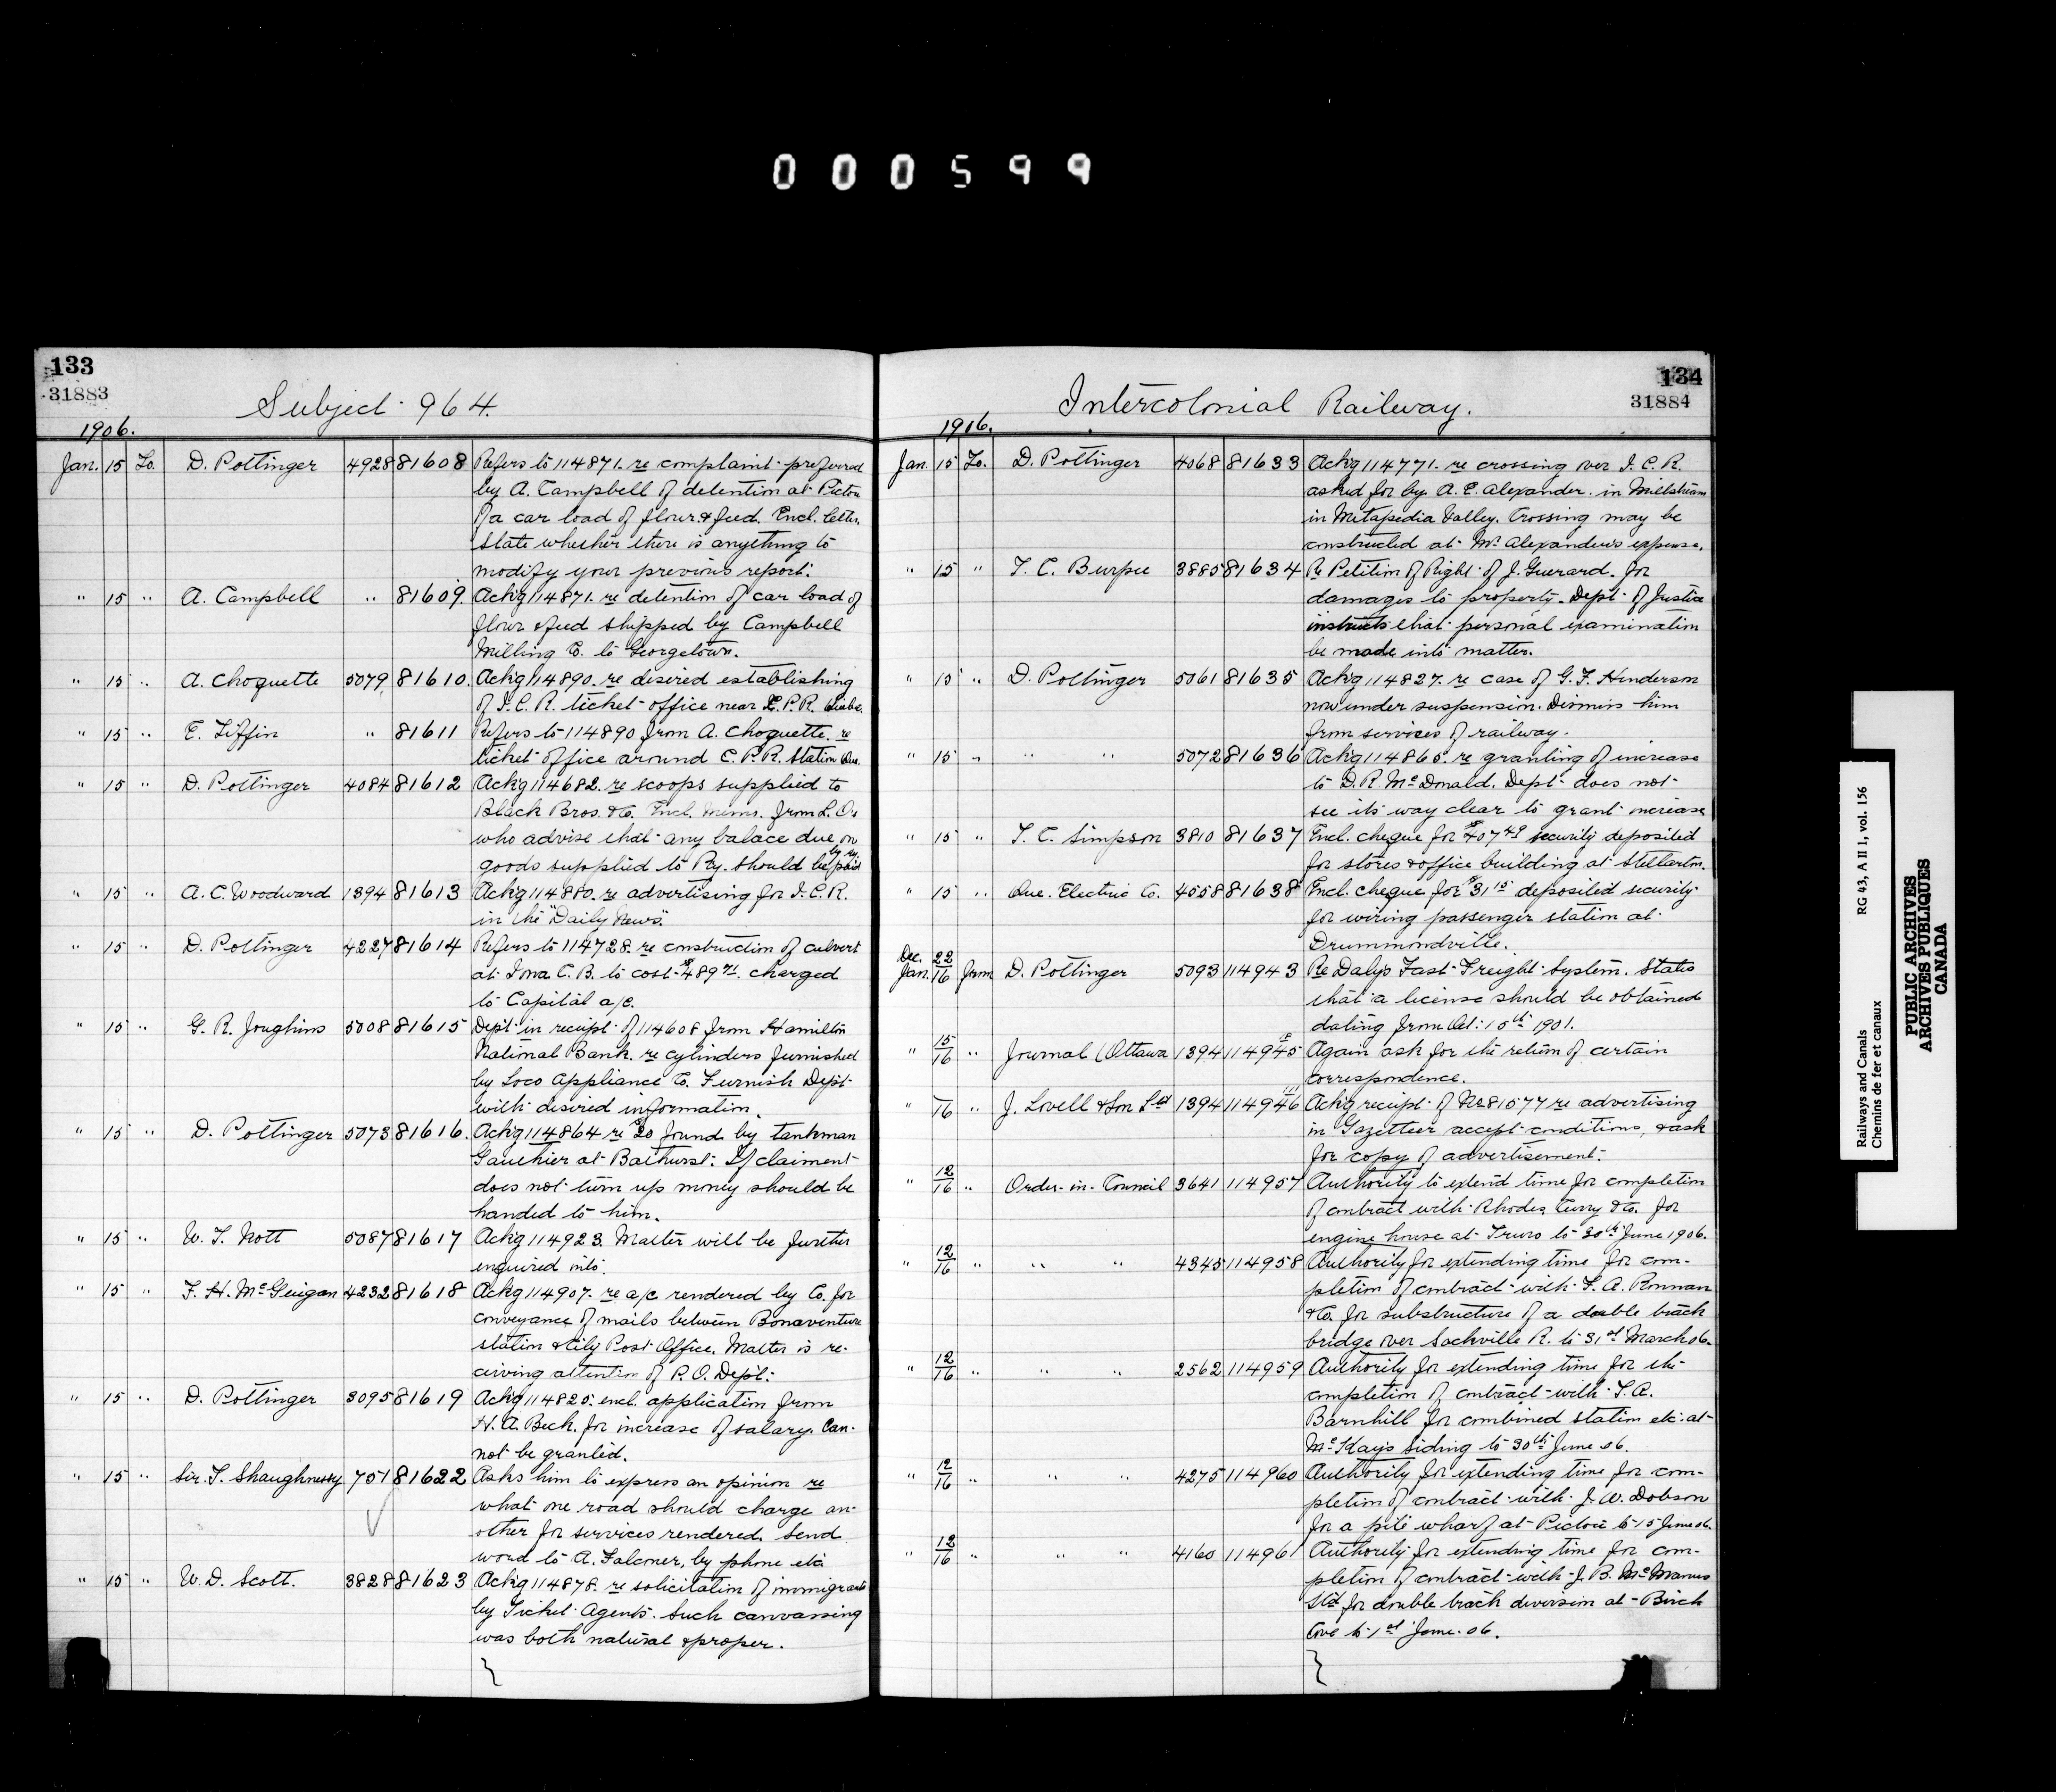 000599
133
31883
Subject 964.
1906.
Jan. 15 To. D. Pottinger 4928 81608 Refers to 114871. re complaint preferred
by A. Campbell of detention at Pictou
of a car load of flour & feed. Encl. letter.
State whether there is anything to
modify your previous report.
" 15 " A. Campbell " 81609. Ackg 114871. re detention of car load of
flour & feed shipped by Campbell
Milling Co. to Georgetown.
" 15 " A. Choquette 5079 81610. Ackg 114890. re desired establishing
of I.C.R. ticket office near C.P.R.
" 15 " E. Tiffin " 81611 Refers to 114890 from A. Choquette. re
ticket office around C.P.R. Station Que.
" 15 " D. Pottinger 4084 81612 Ackg 114682. re scoops supplied to
Black Bros. & Co. Encl. memo. from L.O.
who advise that any balace due on
goods supplied to Ry. should be paid
by Ry.
" 15 " A. C. Woodward 1394 81613 Ackg 114880. re advertising for I.C.R.
in the "Daily News".
" 15 " D. Pottinger 4227 81614 Refers to 114728. re construction of culvert
at Iona C.B. to cost $489 charged
to Capital a/c.
" 15 " G. R. Joughins 5008 81615 Dept in receipt of 114608 from Hamilton
National Bank. re cylinders furnished
by Loco Appliance Co. Furnish Dept
with desired information.
" 15 " D. Pottinger 5073 81616. Ackg 114864 re $20 found by tankman
Gauthier at Bathurst. If claiment
does not turn up money should be
handed to him.
" 15 " W. T. Nott 5087 81617 Ackg 114923. Matter will be further
enquired into.
" 15 " F. H. McGuigan 4232 81618 Ackg 114907. re a/c rendered by Co. for
conveyance of mails between Bonaventure
station & City Post Office. Matter is re-
ceiving attention of P.O. Dept.
" 15 " D. Pottinger 3095 81619 Ackg 114825. encl. application from
H. A. Beck. for increase of salary. Can-
not be granted.
" 15 " Sir. T. Shaughnessy 751 81622 Asks him to express an opinion re
what one road should charge an-
other for services rendered. Send
word to A. Falconer, by phone etc
" 15 " W. D. Scott. 3828 81623 Ackg 114878. re solicitation of immigrants
by Ticket Agents. Such canvassing
was both natural & proper.
134
31884
Intercolonial Railway.
1906.
Jan. 15 To. D. Pottinger 4068 81633 Ackg 114771. re crossing over I.C.R.
asked for by A. E. Alexander. in Millstream
in Metapedia Valley. Crossing may be
constructed at Mr Alexander's expense.
" 15 " T. C. Burpee 3885 81634 Re Petition of Right of J. Guerard. for
damages to property. Dept of Justice
instructs that personal examination
be made into matter.
" 15 " D. Pottinger 5061 81635 Ackg 114827. re case of G. F. Henderson
now under suspension. Dismiss him
from services of railway.
" 15 " " " 5072 81636 Ackg 114865. re granting of increase
to D. R. McDonald. Dept does not
see its way clear to grant increase
" 15 " T. C. Simpson 3810 81637 Encl. cheque for $407 49 security deposited
for stores & office building at Stellarton.
" 15 " Que. Electric Co. 4558 81638 Encl. cheque for $31 15 deposited security
for wiring passenger station at
Drummondville.
Dec. 22
Jan. 16 from D. Pottinger 5093 114943 Re Daly's Fast Freight System. States
that a license should be obtained
dating from Oct. 15th 1901.
" 15/16 " Journal (Ottawa 1394 114945 Again ask for the return of certain
correspondence.
" 16 " J. Lovell & Son Ltd 1394 114946 Ackg receipt of No 81577 re advertising
in Gazetteer accept conditions, & ask
for copy of advertisement.
" 12/16 " Order-in-Council 3641 114957 Authority to extend time for completion
of contract with Rhodes Curry & Co. for
engine house at Truro to 30th June 1906.
" 12/16 " " " 4345 114958 Authority for extending time for com-
pletion of contract with F. A. Ronnan
& Co. for substructure of a double track
bridge over Sackville R. to 31st March 06.
" 12/16 " " " 2562 114959 Authority for extending time for the
completion of contract with T. A.
Barnhill for combined station etc at
McKay's Siding to 30th June 06.
" 12/16 " " " 4275 114960 Authority for extending time for com-
pletion of contract with J. W. Dobson
for a pile wharf at Pictou to 15 June 06.
" 12/16 " " " 4160 114961 Authority for extending time for com-
pletion of contract with J. B. McManus
Ltd for double track diversion at Birch
Cove to 1st June. 06.
Railways and Canals RG 43, A II 1, vol. 156
Chemins de fer et canaux
PUBLIC ARCHIVES
ARCHIVES PUBLIQUES
CANADA